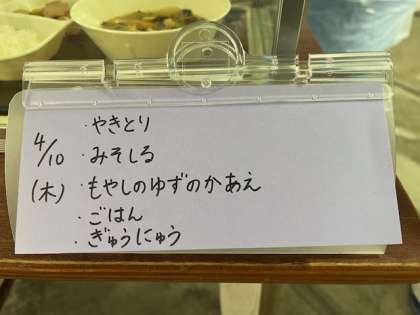 4/10
(木)
・やきとり
・みそしる
・もやしのゆずのかあえ
・ごはん
・ぎゅうにゅう